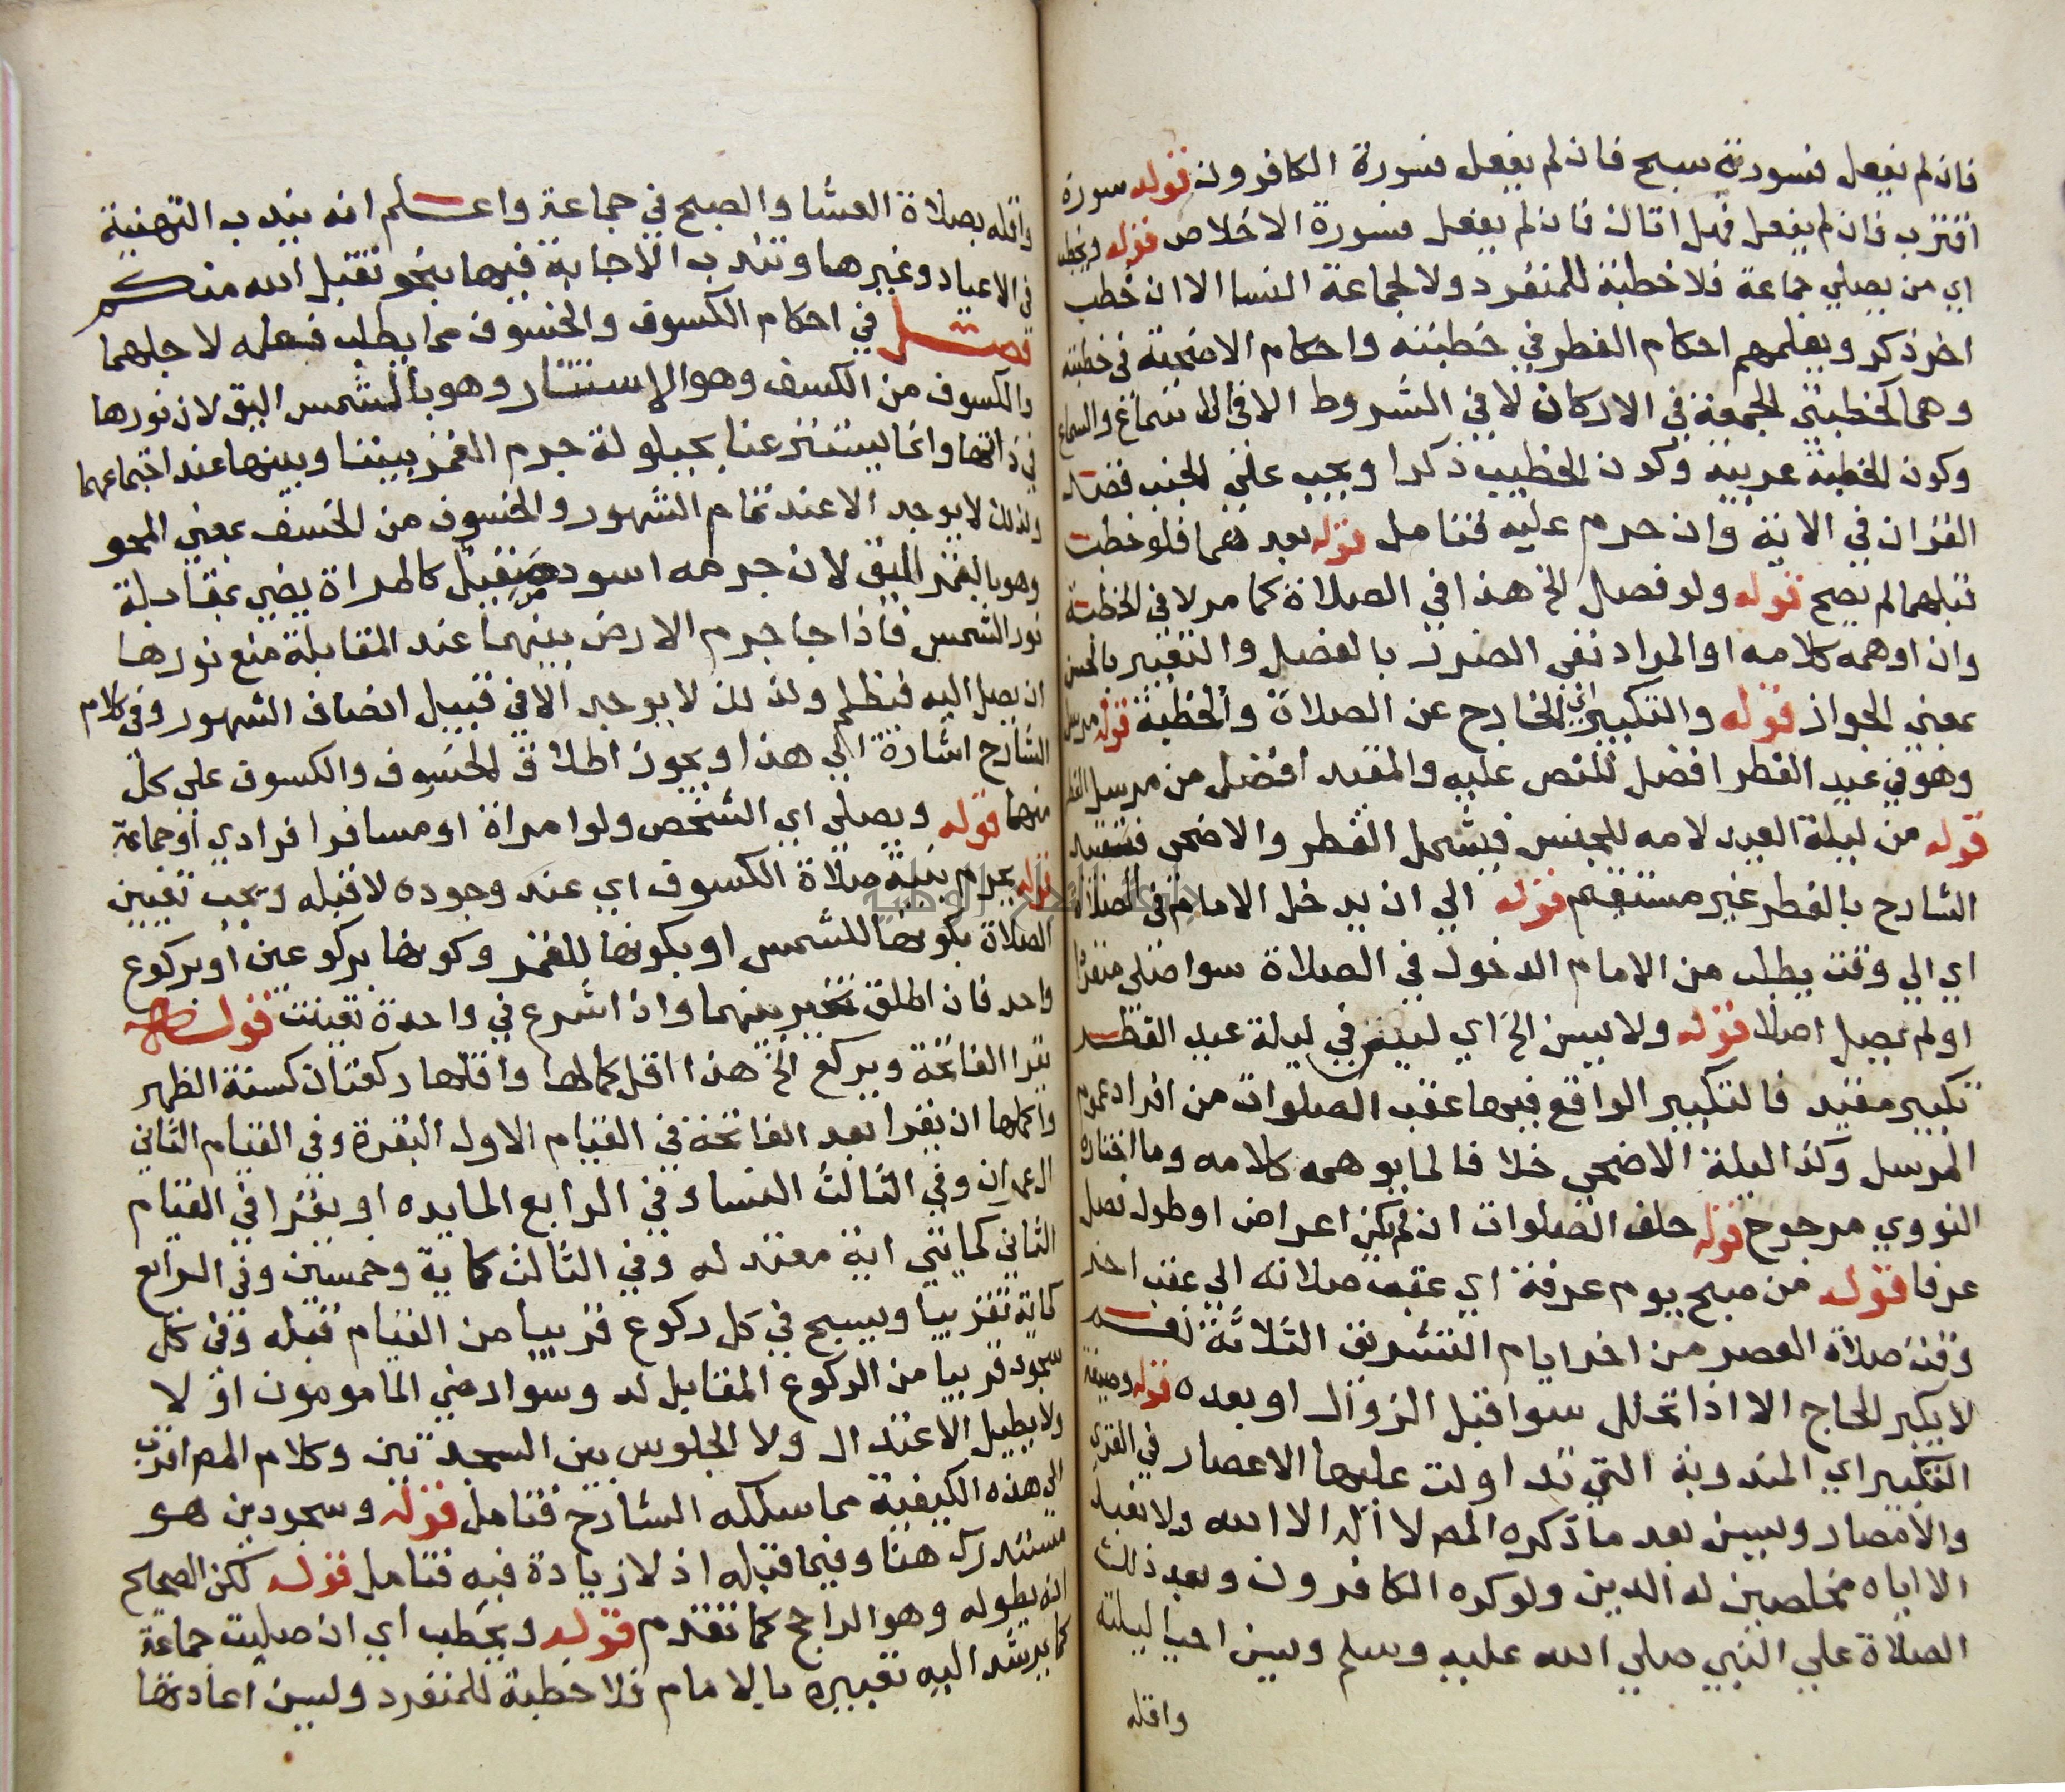 فان لم يفعل فسورة سبح فان لم يفعل فسورة الكافرون قوله سورة
اقتربت فان لم يفعل فهل اتاك فان لم يفعل فسورة الاخلاص قوله ويخطب
اي من يصلي جماعة فلا خطبة للمنفرد ولا لجماعة النسا الا ان خطب
اخر ذكر ويعلمهم احكام الفطر في خطبته واحكام الاضحية في خطبته
وهما كخطبتي الجمعة في الاركان لا في الشروط الا في الاسماع والسماع
وكون الخطبة عربية وكون الخطيب ذكرا ويجب علي الجنب قصد
القران في الاية وان حرم عليه فتامل قوله بعدهما فلو خطب
قبلهما لم يصح قوله ولو فصل الخ هذا في الصلاة كما مر لا في الخطبة
وان اوهمه كلامه او المراد نفي الضرر بالفصل والتعبير بالحسن
بمعني الجواز قوله والتكبير اي الخارج عن الصلاة والخطبة قوله مرسل
وهو في عيد الفطر افضل للنص عليه والمقيد افضل من مرسل الفطر
قوله من ليلة العيد لامه للجنس فيشمل الفطر والاضحي فتقييد
الشارح بالفطر غير مستقيم قوله الي ان يدخل الامام في الصلاة
اي الي وقت يطلب من الامام الدخول في الصلاة سوا صلي منفردا
او لم يصل اصلا قوله ولا يسن الخ اي ليس في ليلة عيد الفطر
تكبير مقيد فالتكبير الواقع فيها عقب الصلوات من افراد عموم
المرسل وكذا ليلة الاضحي خلافا لما يوهمه كلامه وما اختاره
النووي مرجوح قوله خلف الصلوات ان لم يكن اعراض او طول فصل
عرفا قوله من صبح يوم عرفة اي عقب صلاته الي عقب اخر
وقت صلاة العصر من اخر ايام التشريق الثلاثة نعم
لا يكبر الحاج الا اذا تحلل سوا قبل الزوال او بعده قوله وصيغة
التكبير اي المندوبة التي تداولت عليها الاعصار في القري
والامصار ويسن بعد ما ذكره المص لا اله الا الله ولا نعبد
الا اياه مخلصين له الدين ولو كره الكافرون وبعد ذلك
الصلاة علي النبي صلي الله عليه وسلم ويسن احيا ليلته
واقله
واقله بصلاة العشا والصبح في جماعة واعلم انه يندب التهنية
في الاعياد وغيرها وتندب الاجابة فيها بنحو تقبل الله منكم
فصل في احكام الكسوف والخسوف مما يطلب فعله لاجلهما
والكسوف من الكسف وهو الاستتار وهو بالشمس اليق لان نورها
في ذاتها وانما يستتر عنا بحيلولة جرم القمر بيننا وبينها عند اجتماعهما
ولذلك لا يوجد الا عند تمام الشهور والخسوف من الخسف بمعني المحو
وهو بالقمر اليق لان جرمه اسود صقيل كالمراة يضي بمقابلة
نور الشمس فاذا جا جرم الارض بينهما عند المقابلة منع نورها
ان يصل اليه فيظلم ولذلك لا يوجد الا في قبيل انصاف الشهور وفي كلام
الشارح اشارة الي هذا ويجوز اطلاق الخسوف والكسوف علي كل
منهما قوله ويصلي اي الشخص ولو امراة او مسافرا فرادي او جماعة
قوله يحرم بنية صلاة الكسوف اي عند وجوده لا قبله ويجب تعيين
الصلاة بكونها للشمس او بكونها للقمر وكونها بركوعين او بركوع
واحد فان اطلق تخير بينهما واذا شرع في واحدة تعينت قوله
يقرا الفاتحة ويركع الخ هذا اقل كمالها واقلها ركعتان كسنة الظهر
واكملها ان يقرا بعد الفاتحة في القيام الاول البقرة وفي القيام الثاني
ال عمران وفي الثالث النسا وفي الرابع المايده او يقرا في القيام
الثاني كمايتي اية معتدلة وفي الثالث كماية وخمسين وفي الرابع
كماية تقريبا ويسبح في كل ركوع قريبا من القيام قبله وفي كل
سجود قريبا من الركوع المقابل له وسوا رضي المامومون او لا
ولا يطيل الاعتدال ولا الجلوس بين السجدتين وكلام المص اقرب
الي هذه الكيفية مما سلكه الشارح فتامل قوله وسجودين هو
مستدرك هنا وفيما قبله اذ لا زيادة فيه فتامل قوله لكن الصحيح
انه يطوله وهو الراجح كما تقدم قوله ويخطب اي ان صليت جماعة
كما يرشد اليه تعبيره بالامام فلا خطبة للمنفرد ويسن اعادتها